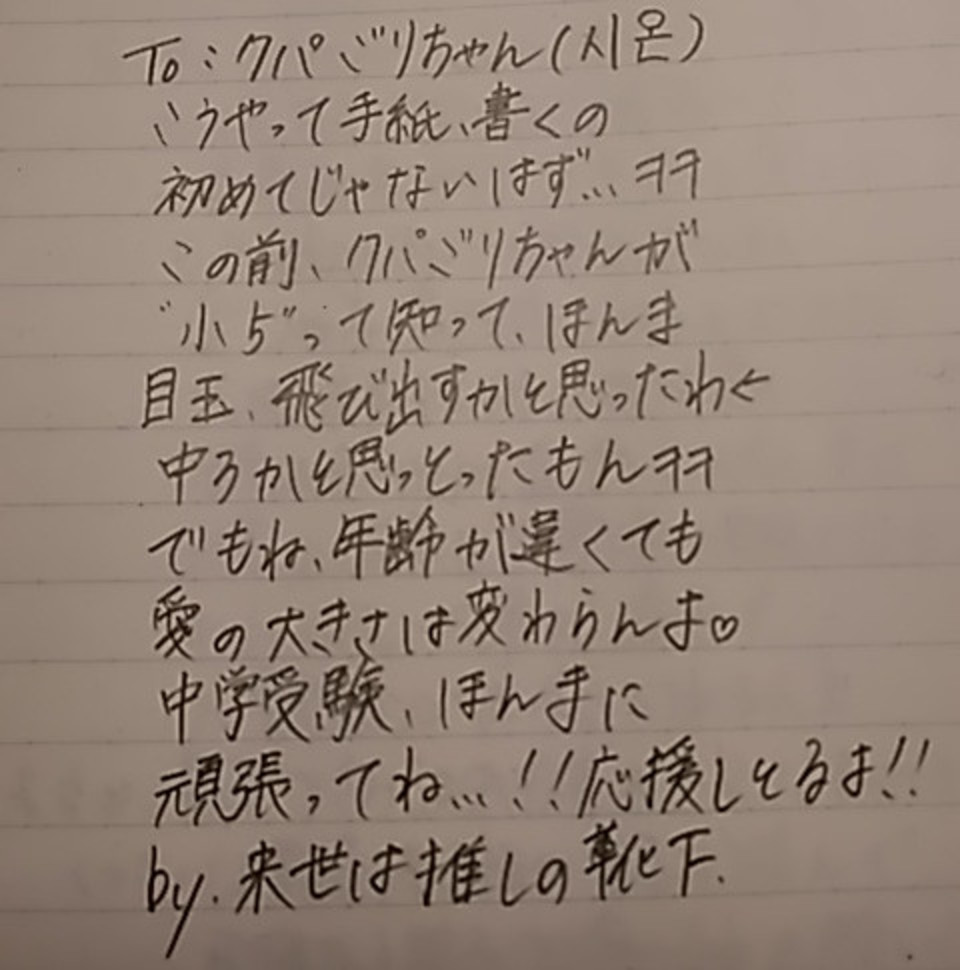 To:クパごりちゃん(시온)
こうやって手紙、書くの
初めてじゃないはず...ㅋㅋ
この前、クパごりちゃんが
"小5"って知って、ほんま
目玉、飛び出すかと思ったわ<
中3かと思っとったもんㅋㅋ
でもね、年齢が違くても
愛の大きさは変わらんよ♡
中学受験、ほんまに
頑張ってね...!!応援しとるよ!!
by.来世は推しの靴下.